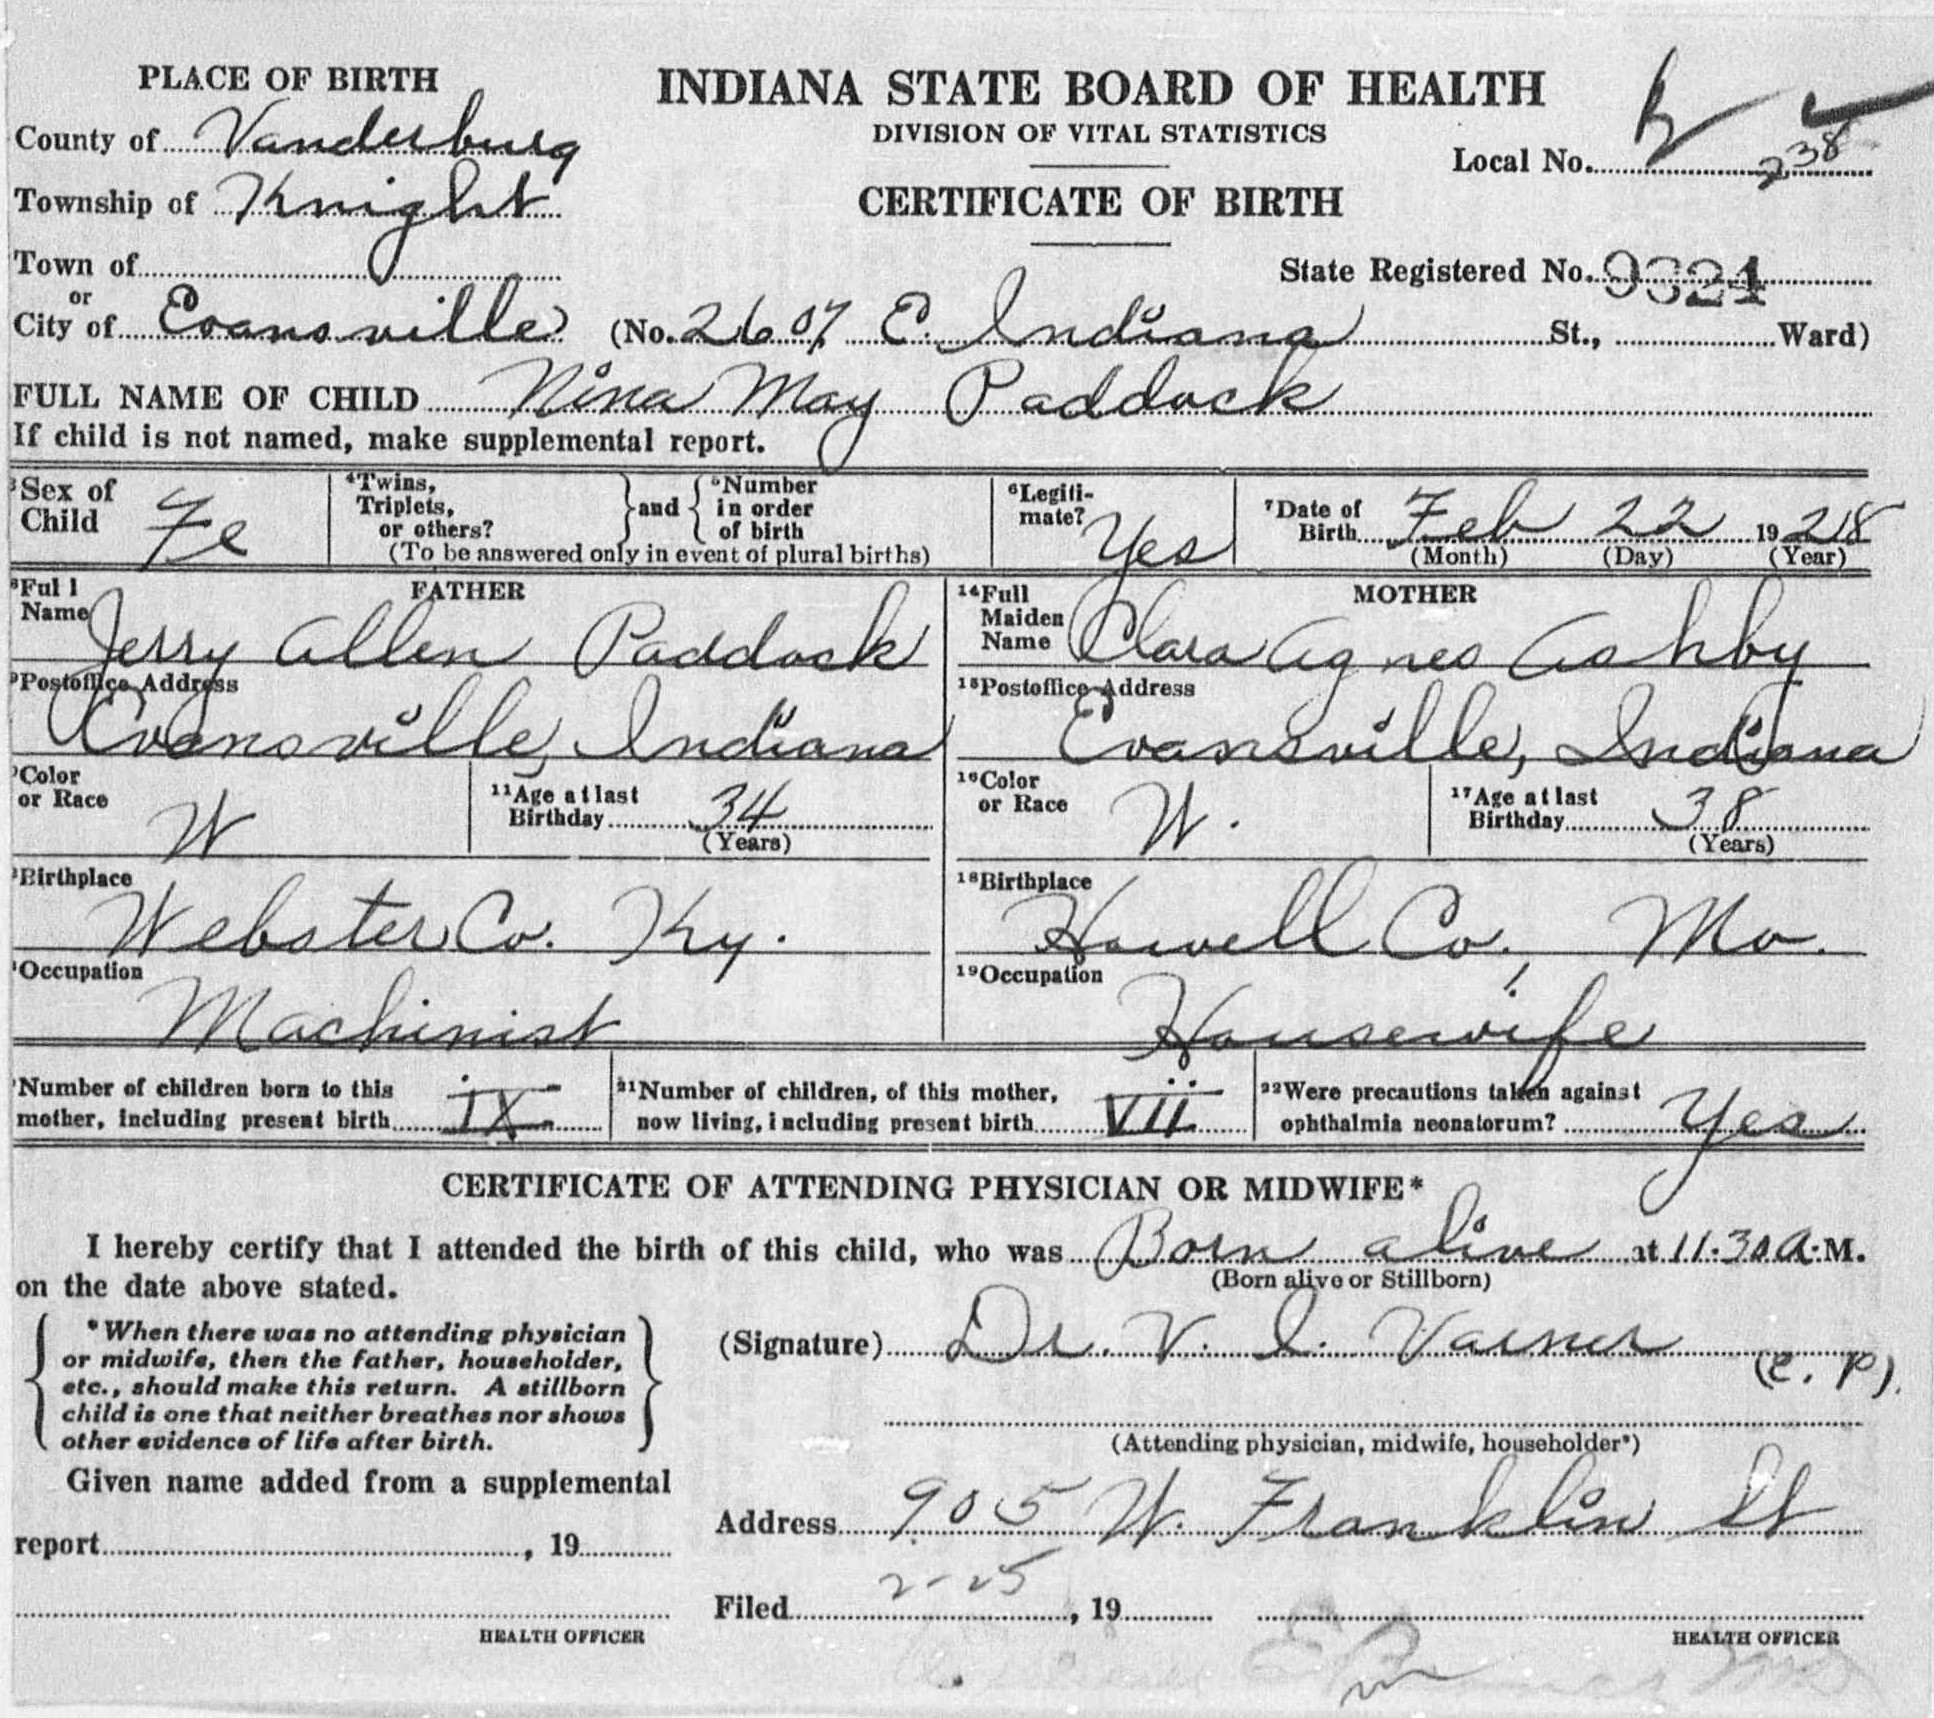 PLACE OF BIRTH
County of Vanderburg
Township of Knight
Town of
or
City of Evansville (No. 2607 E. Indiana St., Ward)
INDIANA STATE BOARD OF HEALTH
DIVISION OF VITAL STATISTICS
Local No. 238
CERTIFICATE OF BIRTH
State Registered No. 9324
FULL NAME OF CHILD Nina May Paddock
If child is not named, make supplemental report.
3Sex of Child Fe
4Twins, Triplets, or others? } and { 5Number in order of birth
(To be answered only in event of plural births)
6Legiti-mate? Yes
7Date of Birth Feb 22 1928
(Month) (Day) (Year)
FATHER
8Full Name Jerry Allen Paddock
9Postoffice Address
Evansville, Indiana
Color or Race W
11Age at last Birthday 34
(Years)
Birthplace
Webster Co. Ky.
Occupation
Machinist
MOTHER
14Full Maiden Name Clara Agnes Ashby
15Postoffice Address
Evansville, Indiana
16Color or Race W.
17Age at last Birthday 38
(Years)
18Birthplace
Howell Co., Mo.
19Occupation
Housewife
Number of children born to this mother, including present birth IX
21Number of children, of this mother, now living, including present birth VII
22Were precautions taken against ophthalmia neonatorum? Yes
CERTIFICATE OF ATTENDING PHYSICIAN OR MIDWIFE*
I hereby certify that I attended the birth of this child, who was Born alive at 11.30 A.M.
(Born alive or Stillborn)
on the date above stated.
*When there was no attending physician
or midwife, then the father, householder,
etc., should make this return. A stillborn
child is one that neither breathes nor shows
other evidence of life after birth.
(Signature) Dr. V. I. Varner
(C. P).
(Attending physician, midwife, householder*)
Given name added from a supplemental
report , 19
HEALTH OFFICER
Address 905 W. Franklin St
Filed 2-25, 19
HEALTH OFFICER